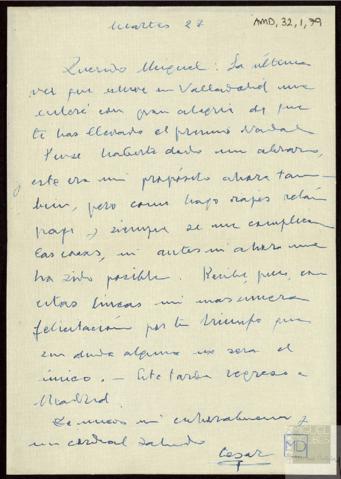 Martes 27
AMD, 32, 1, 79
Querido Miguel: La última
vez que estuve en Valladolid me
enteré con gran alegría de que
te has llevado el premio Nadal.
Pensé haberte dado un abrazo,
este era mi propósito ahora tam-
bien, pero como hago viajes relám
pago y siempre se me complican
las cosas, ni antes ni ahora me
ha sido posible. Recibe, pues, con
estas líneas mi mas sincera
felicitación por tu triunfo que
sin duda alguna no sera el
único. — Esta tarde regreso a
Madrid.
mi enhorabuena y
un cordial saludo
Cesar
MD